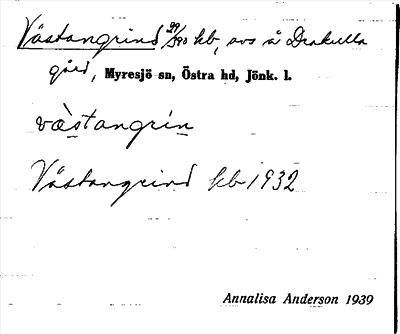 Västangrind 99/390 kb, avs å Drakulla
gård, Myresjö sn, Östra hd, Jönk. l.
væ̀stangrin
Västangrind kb 1932
Annalisa Anderson 1939